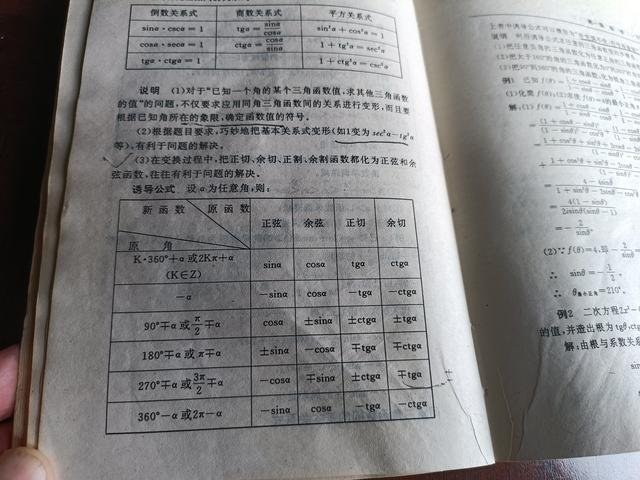 倒数关系式 商数关系式 平方关系式
sinα·cscα=1 tgα=sinα/cosα sin²α+cos²α=1
cosα·secα=1 ctgα=cosα/sinα 1+tg²α=sec²α
tgα·ctgα=1 1+ctg²α=csc²α
说明 (1)对于“已知一个角的某个三角函数值,求其他三角函数
的值”的问题,不仅要求应用同角三角函数间的关系进行变形,而且要
根据已知角所在的象限,确定函数值的符号。
(2)根据题目要求,巧妙地把基本关系式变形(如1变为 sec²α-tg²α
等),有利于问题的解决。
(3)在变换过程中,把正切、余切、正割、余割函数都化为正弦和余
弦函数,往往有利于问题的解决。
诱导公式 设α为任意角,则:
新函数 原函数 正弦 余弦 正切 余切
原角
K·360°+α或2Kπ+α sinα cosα tgα ctgα
(K∈Z)
-α -sinα cosα -tgα -ctgα
90°∓α或π/2∓α cosα ±sinα ±ctgα ±tgα
180°∓α或π∓α ±sinα -cosα ∓tgα ∓ctgα
270°∓α或3π/2∓α -cosα ∓sinα ±ctgα ∓tgα
360°-α或2π-α -sinα cosα -tgα -ctgα
例1 已知f(θ)=
(1)化简f(θ);(2)求使f(θ)=4的最小
解:(1)f(θ)=
=4(1-sinθ)/2sinθ(sinθ-1)
=-2/sinθ
(2)∵f(θ)=4,即-2/sinθ
∴ sinθ=-1/2。
∴ θ最小正角=210°。
例2 二次方程2x²-
的值,并造出根为tgθ,ctg
解:由根与系数关系